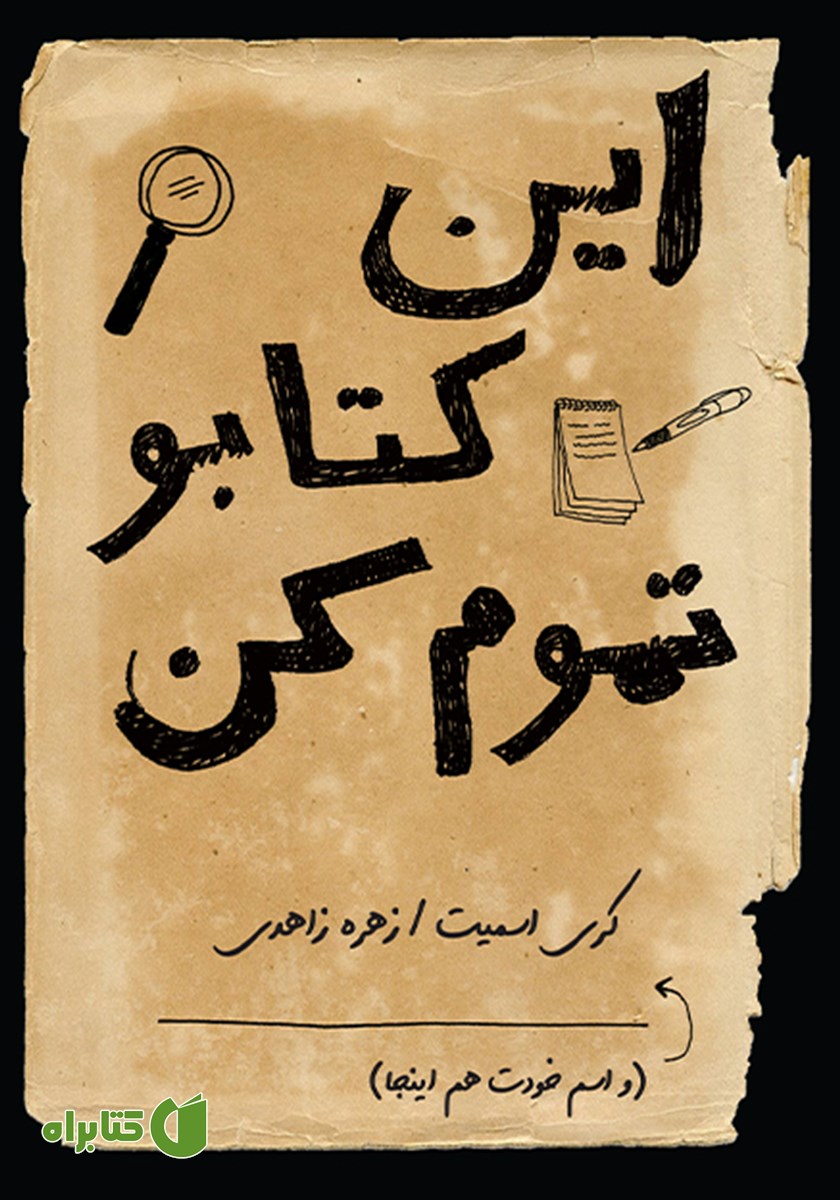 این
کتابو
تموم کن
کری اسمیت / زهره زاهدی
(و اسم خودت هم اینجا)
کتابراه